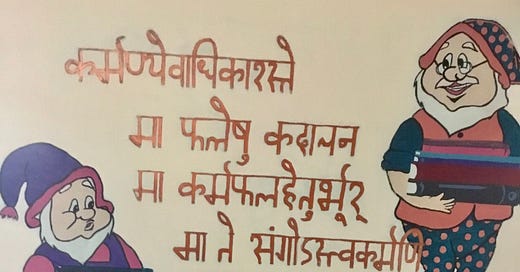 कर्मण्येवाधिकारस्ते
मा फलेषु कदाचन
मा कर्मफलहेतुर्भूर्
मा ते संगोऽस्त्वकर्मणि